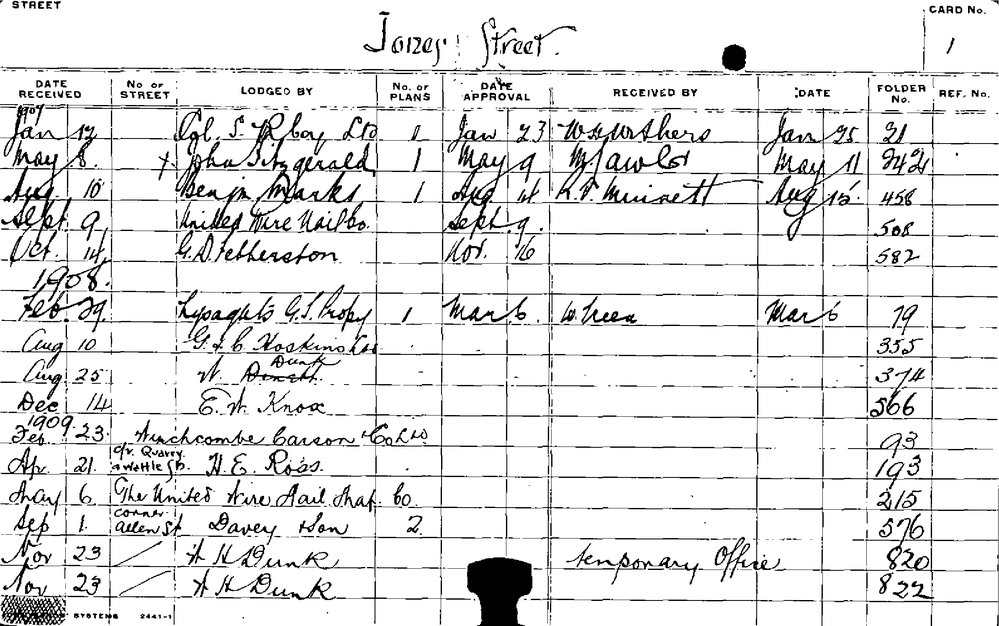 STREET
CARD No.
Jones Street.
1
DATE RECEIVED No OF STREET LODGED BY No. OF PLANS DATE APPROVAL RECEIVED BY DATE FOLDER No. REF. No.
1907
Jan 12 Ltd 1 Jan 23 Withers Jan 25 21
May 8. x John Fitzgerald 1 May 9 M Lawlor May 11 242
Aug 10 Benjn Marks 1 Aug 14 Minnett Aug 15 458
Sept. 9 United Wire Nail Co. Sept. 9. 508
Oct. 14 G.D. Fetherston Nov. 16 582
1908.
Feb. 29. Lysaghts G.S. Propy 1 Mar 6. W. Green Mar 6 79
Aug 10 G & C Hoskins Ltd 355
Aug. 25 W. Dunk 374
Dec 14 E. W. Knox 566
1909.
Feb. 23. Winchcombe Carson & Co Ltd 93
Apr. 21. c/r. Quarry & Wattle Sts. H. E. Ross. 193
May 6 The United Wire Nail Co. 215
Sep 1. corner Allen St Davey & Son 2. 576
Nov 23 A H Dunk temporary Office 820
Nov 23 A H Dunk 822
SYSTEMS 2441-1